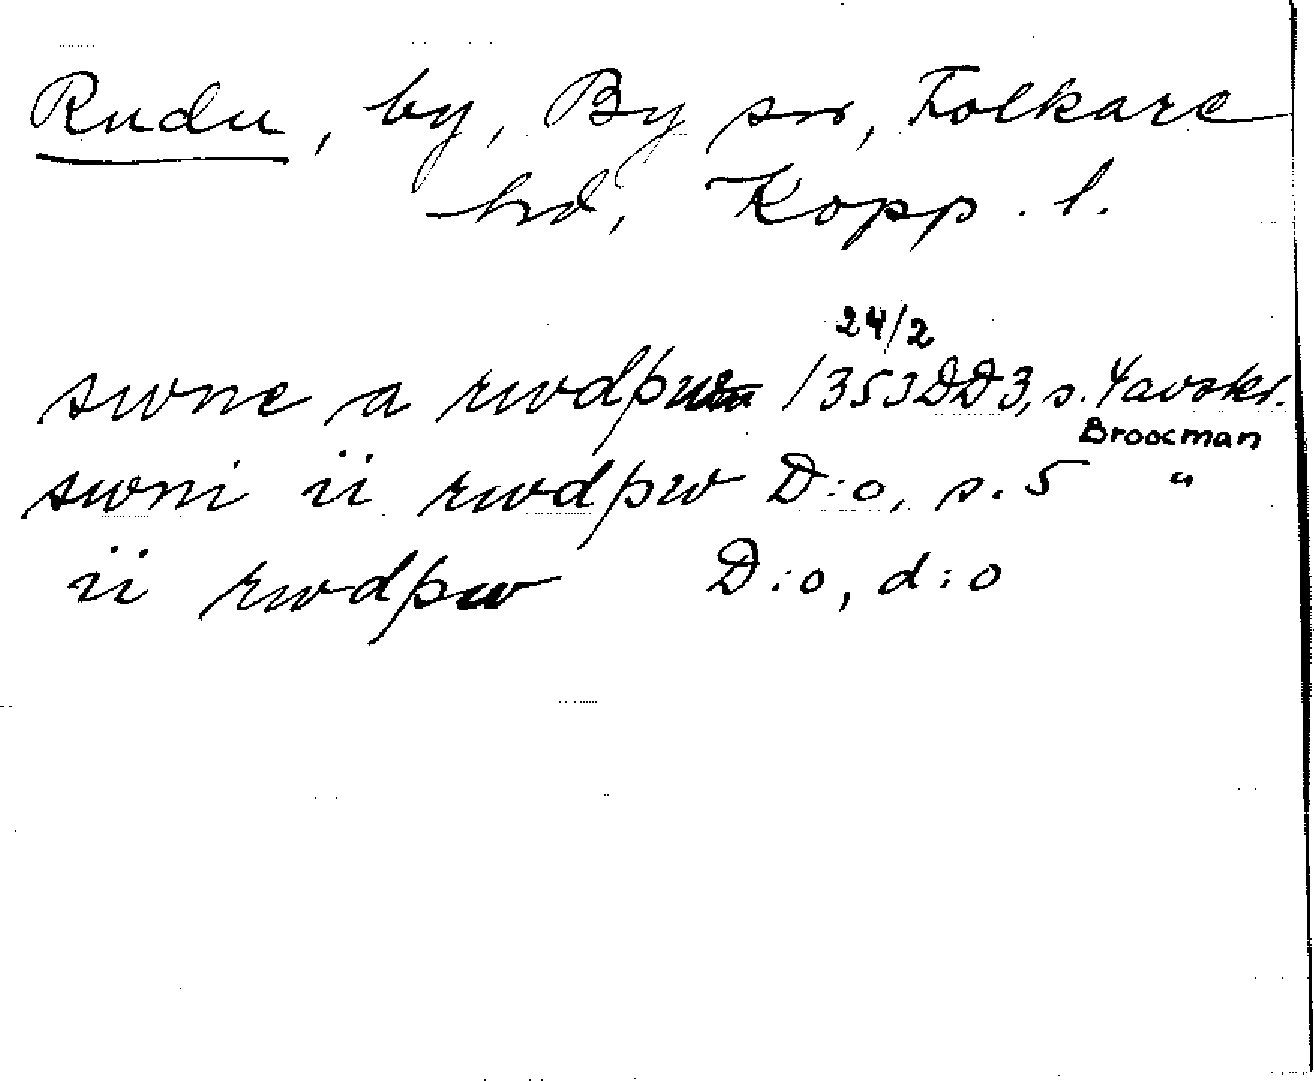 Rudu, by, By sn, Folkare
hd, Kopp. l.
24/2
swne a rwdþw 1353 DD3, s. 4 avskr.
Broocman
swni ii rwdþw D:o, s. 5 "
ii rwdþw D:o, d:o